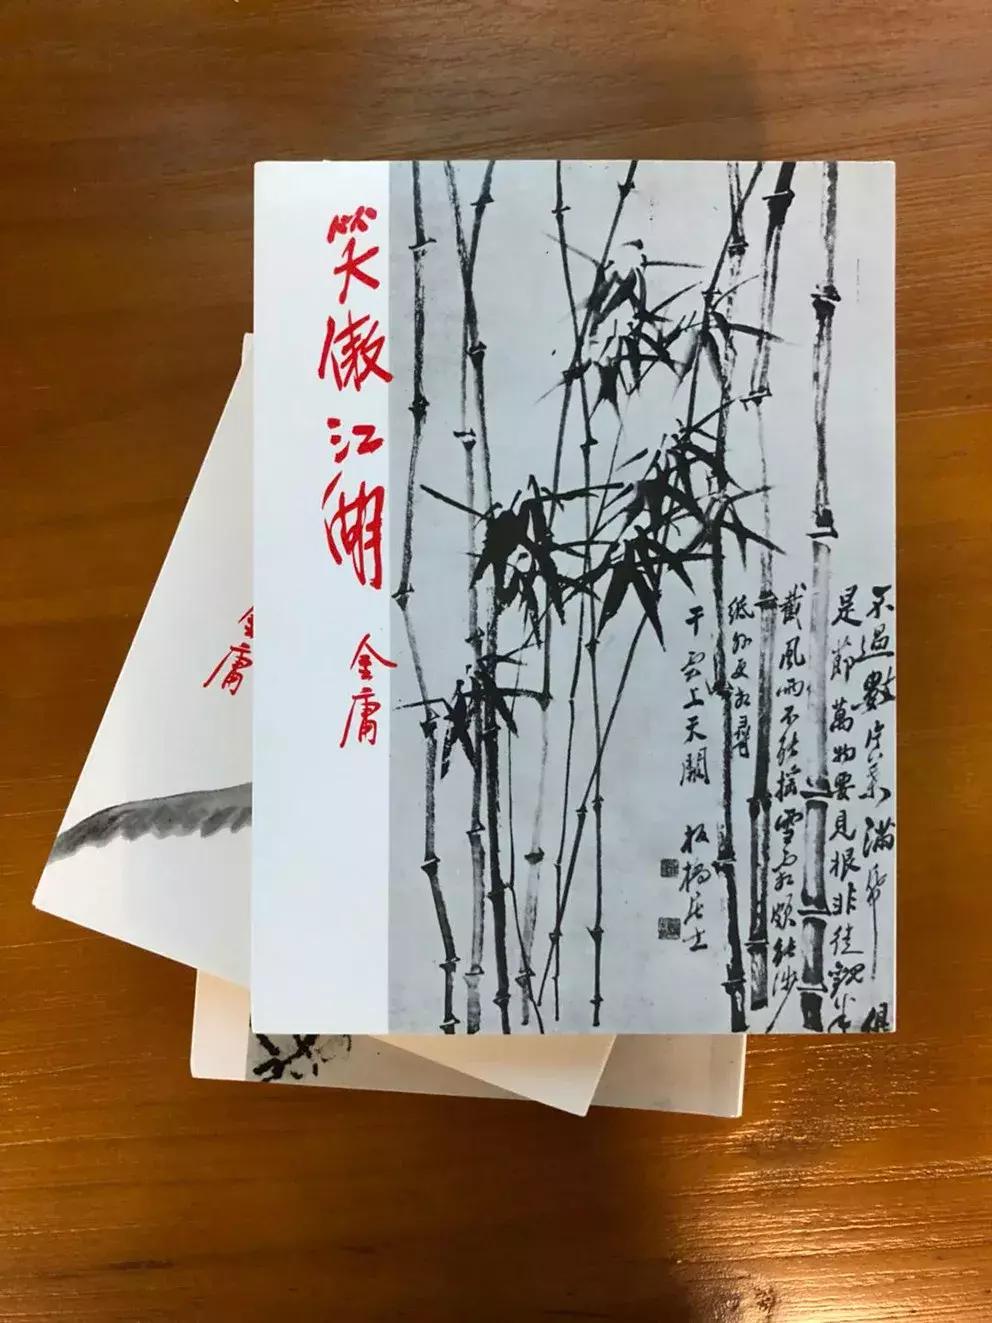 笑傲江湖
金庸
不過數片葉滿紙俱
是節萬物要見根非徒觀半
截風雨不能搖雪霜頗能涉
紙外更相尋
干雲上天闕
板橋居士
金庸